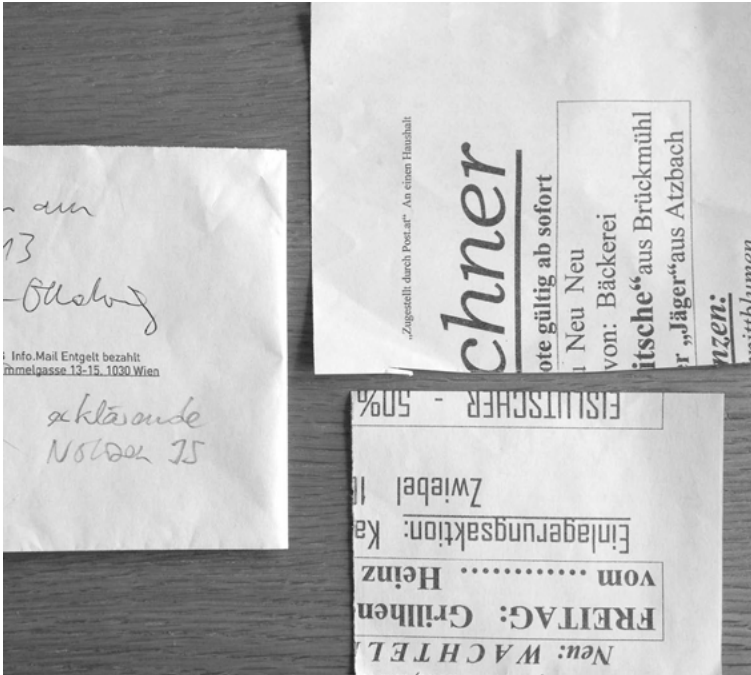 13
Info.Mail Entgelt bezahlt
mmelgasse 13-15, 1030 Wien
erklärende
„Zugestellt durch Post.at“ An einen Haushalt
chner
ote gültig ab sofort
Neu Neu
von: Bäckerei
itsche“aus Brückmühl
r „Jäger“aus Atzbach
nzen:
Neu: WACHTEL
FREITAG: Grillhen
vom ........... Heinz
Einlagerungsaktion: Ka
Zwiebel
EISLUTSCHER - 50%